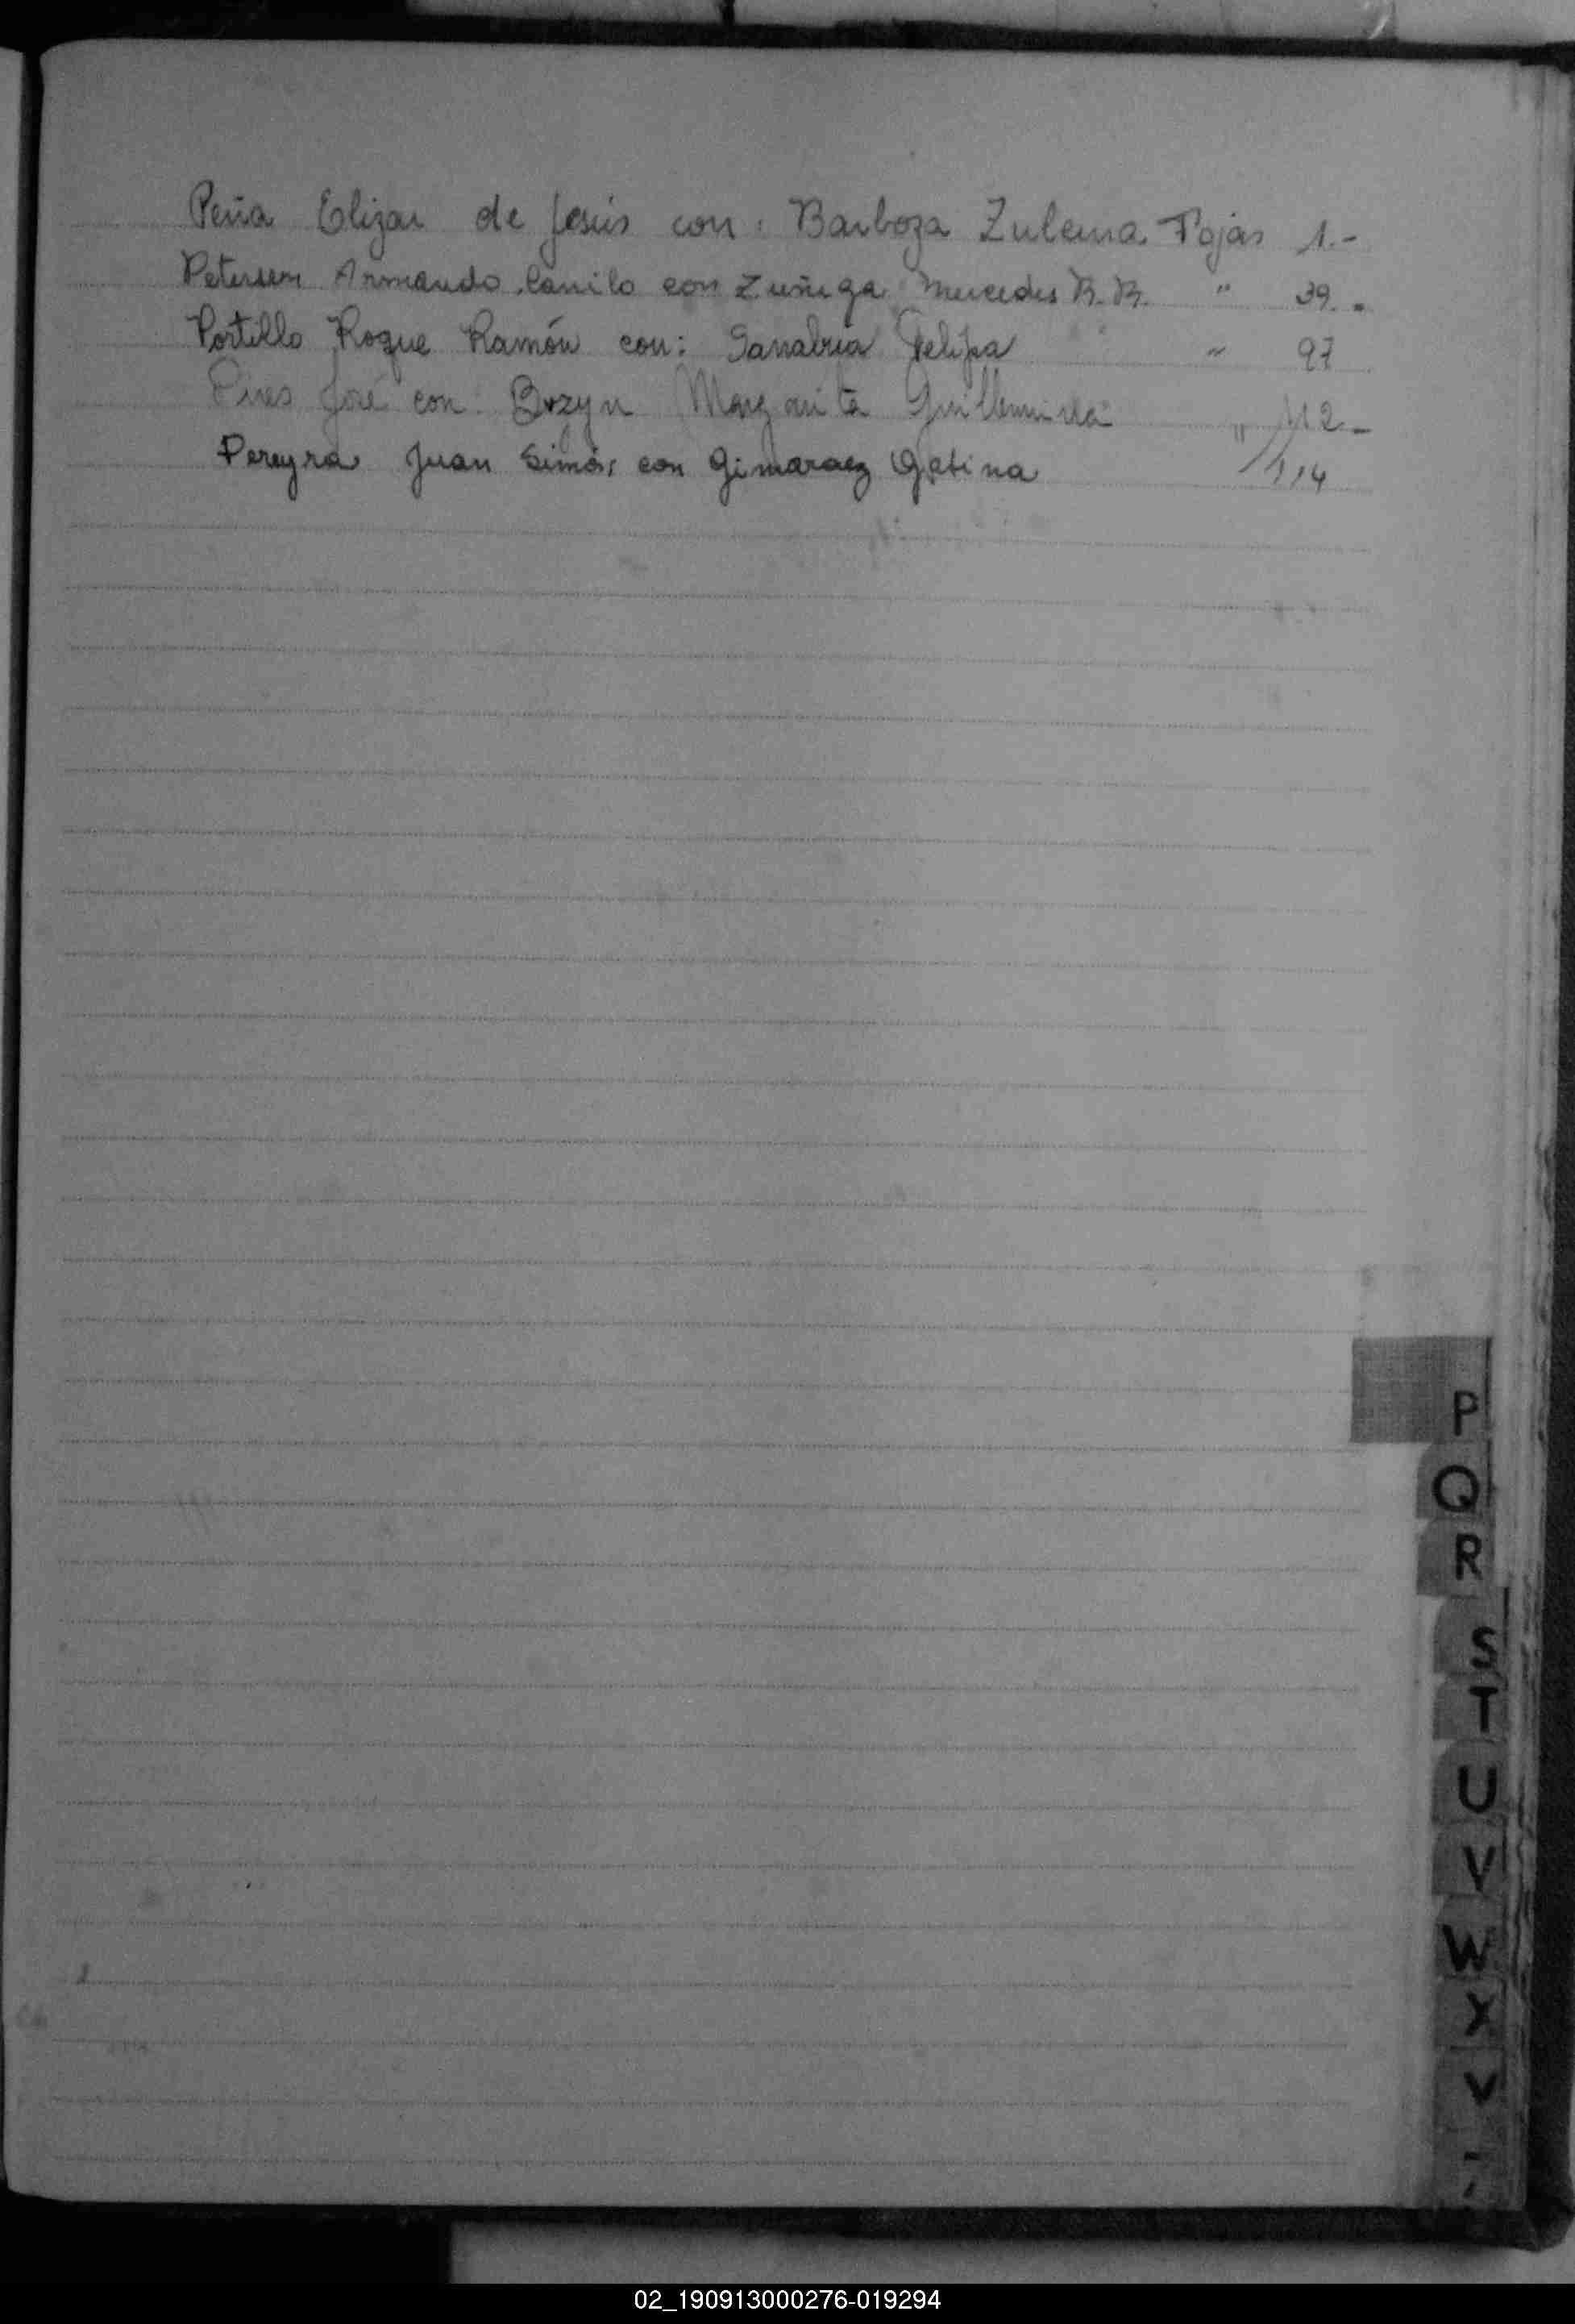 Peña Elizar de Jesús con: Barboza Zulema. Fojas 1.-
Petersen Armando Camilo con Zuñiga Mercedes B.B. " 39.-
Portillo Roque Ramón con: Sanabria Felipa " 97
Pires José con Bozyn Margarita Guillermina " 112-
Pereyra Juan Simón con Gimaraez 114
P
Q
R
S
T
U
V
W
X
Y
02_190913000276-019294